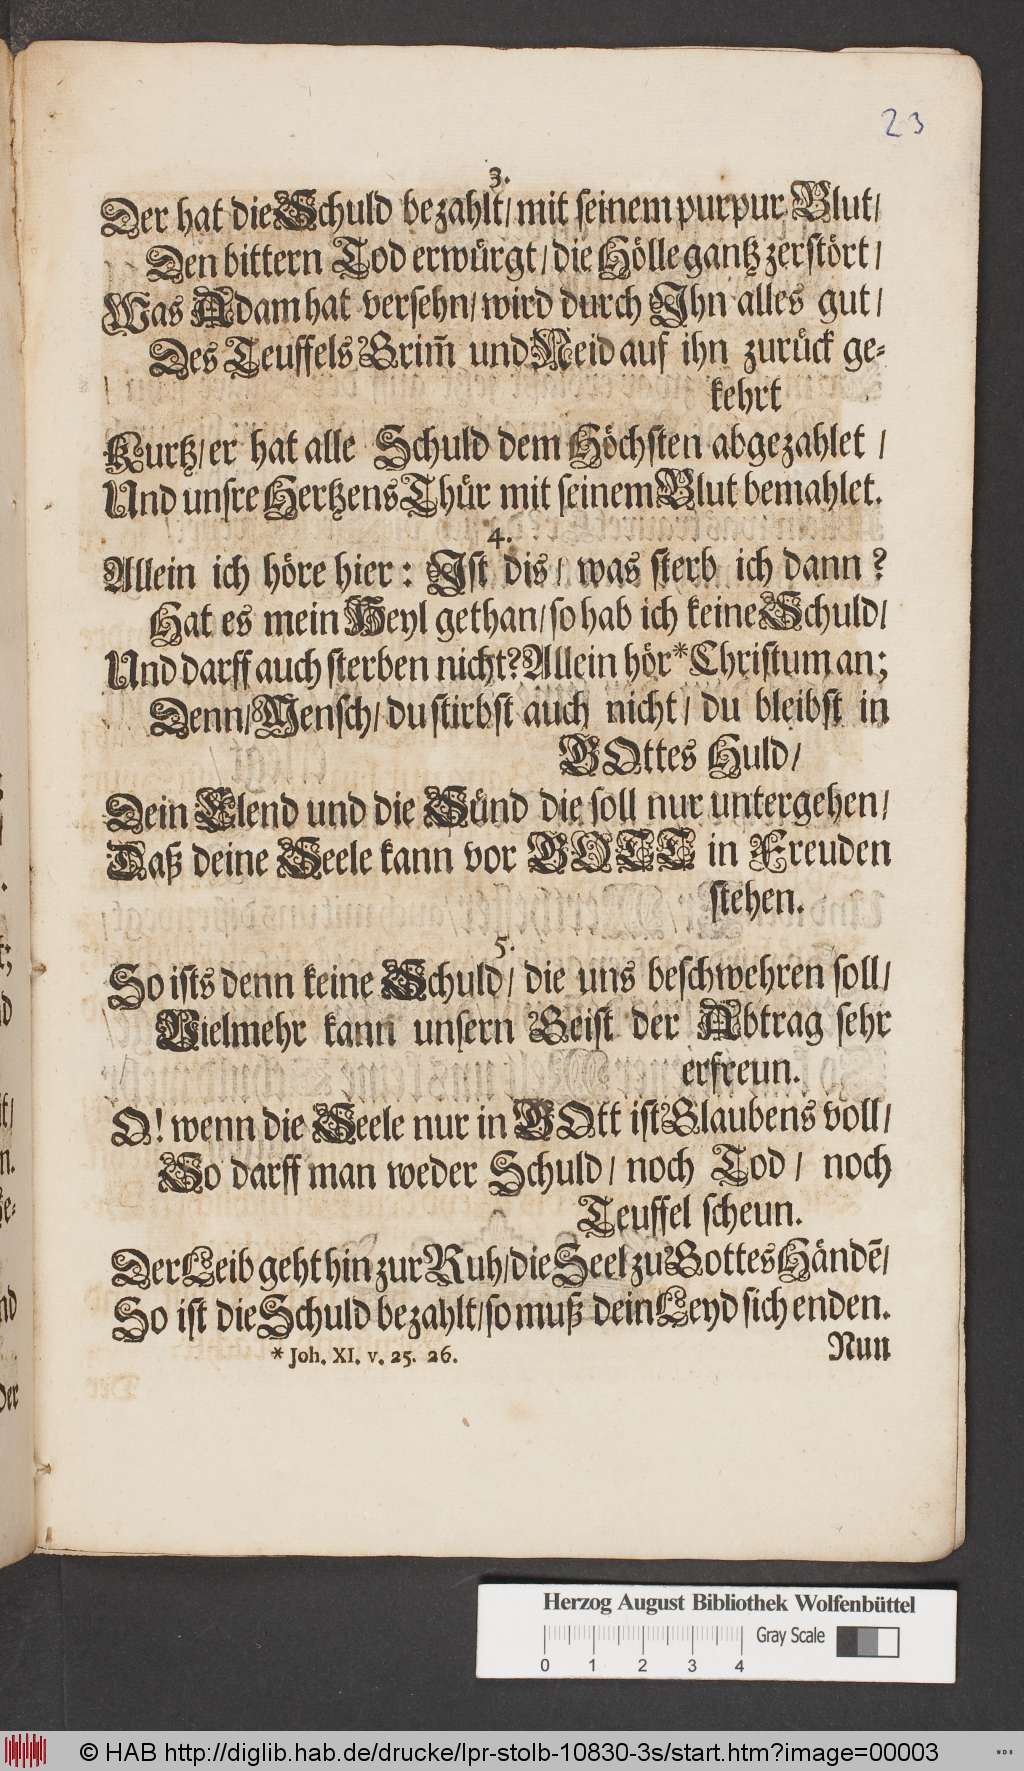 23
3.
Der hat die Schuld bezahlt/ mit seinem purpur Blut/
Den bittern Tod erwürgt/ die Hölle gantz zerstört/
Was Adam hat versehn/ wird durch Ihn alles gut/
Des Teuffels Grim̃ und Neid auf ihn zurück ge-
kehrt
Kurtz/ er hat alle Schuld dem Höchsten abgezahlet/
Und unsre Hertzens Thür mit seinem Blut bemahlet.
4.
Allein ich höre hier: Ist dis/ was sterb ich dann?
Hat es mein Heyl gethan/ so hab ich keine Schuld/
Und darff auch sterben nicht? Allein hör * Christum an;
Denn/ Mensch/ du stirbst auch nicht/ du bleibst in
GOttes Huld/
Dein Elend und die Sünd die soll nur untergehen/
Daß deine Seele kann vor GOTT in Freuden
stehen.
5.
So ists denn keine Schuld/ die uns beschwehren soll/
Vielmehr kann unsern Geist der Abtrag sehr
erfreun.
O! wenn die Seele nur in GOtt ist Glaubens voll/
So darff man weder Schuld/ noch Tod/ noch
Teuffel scheun.
Der Leib geht hin zur Ruh/ die Seel zu Gottes Händẽ/
So ist die Schuld bezahlt/ so muß dein Leyd sich enden.
* Joh. XI. v. 25. 26.
Nun
Herzog August Bibliothek Wolfenbüttel
Gray Scale
0 1 2 3 4
© HAB http://diglib.hab.de/drucke/lpr-stolb-10830-3s/start.htm?image=00003